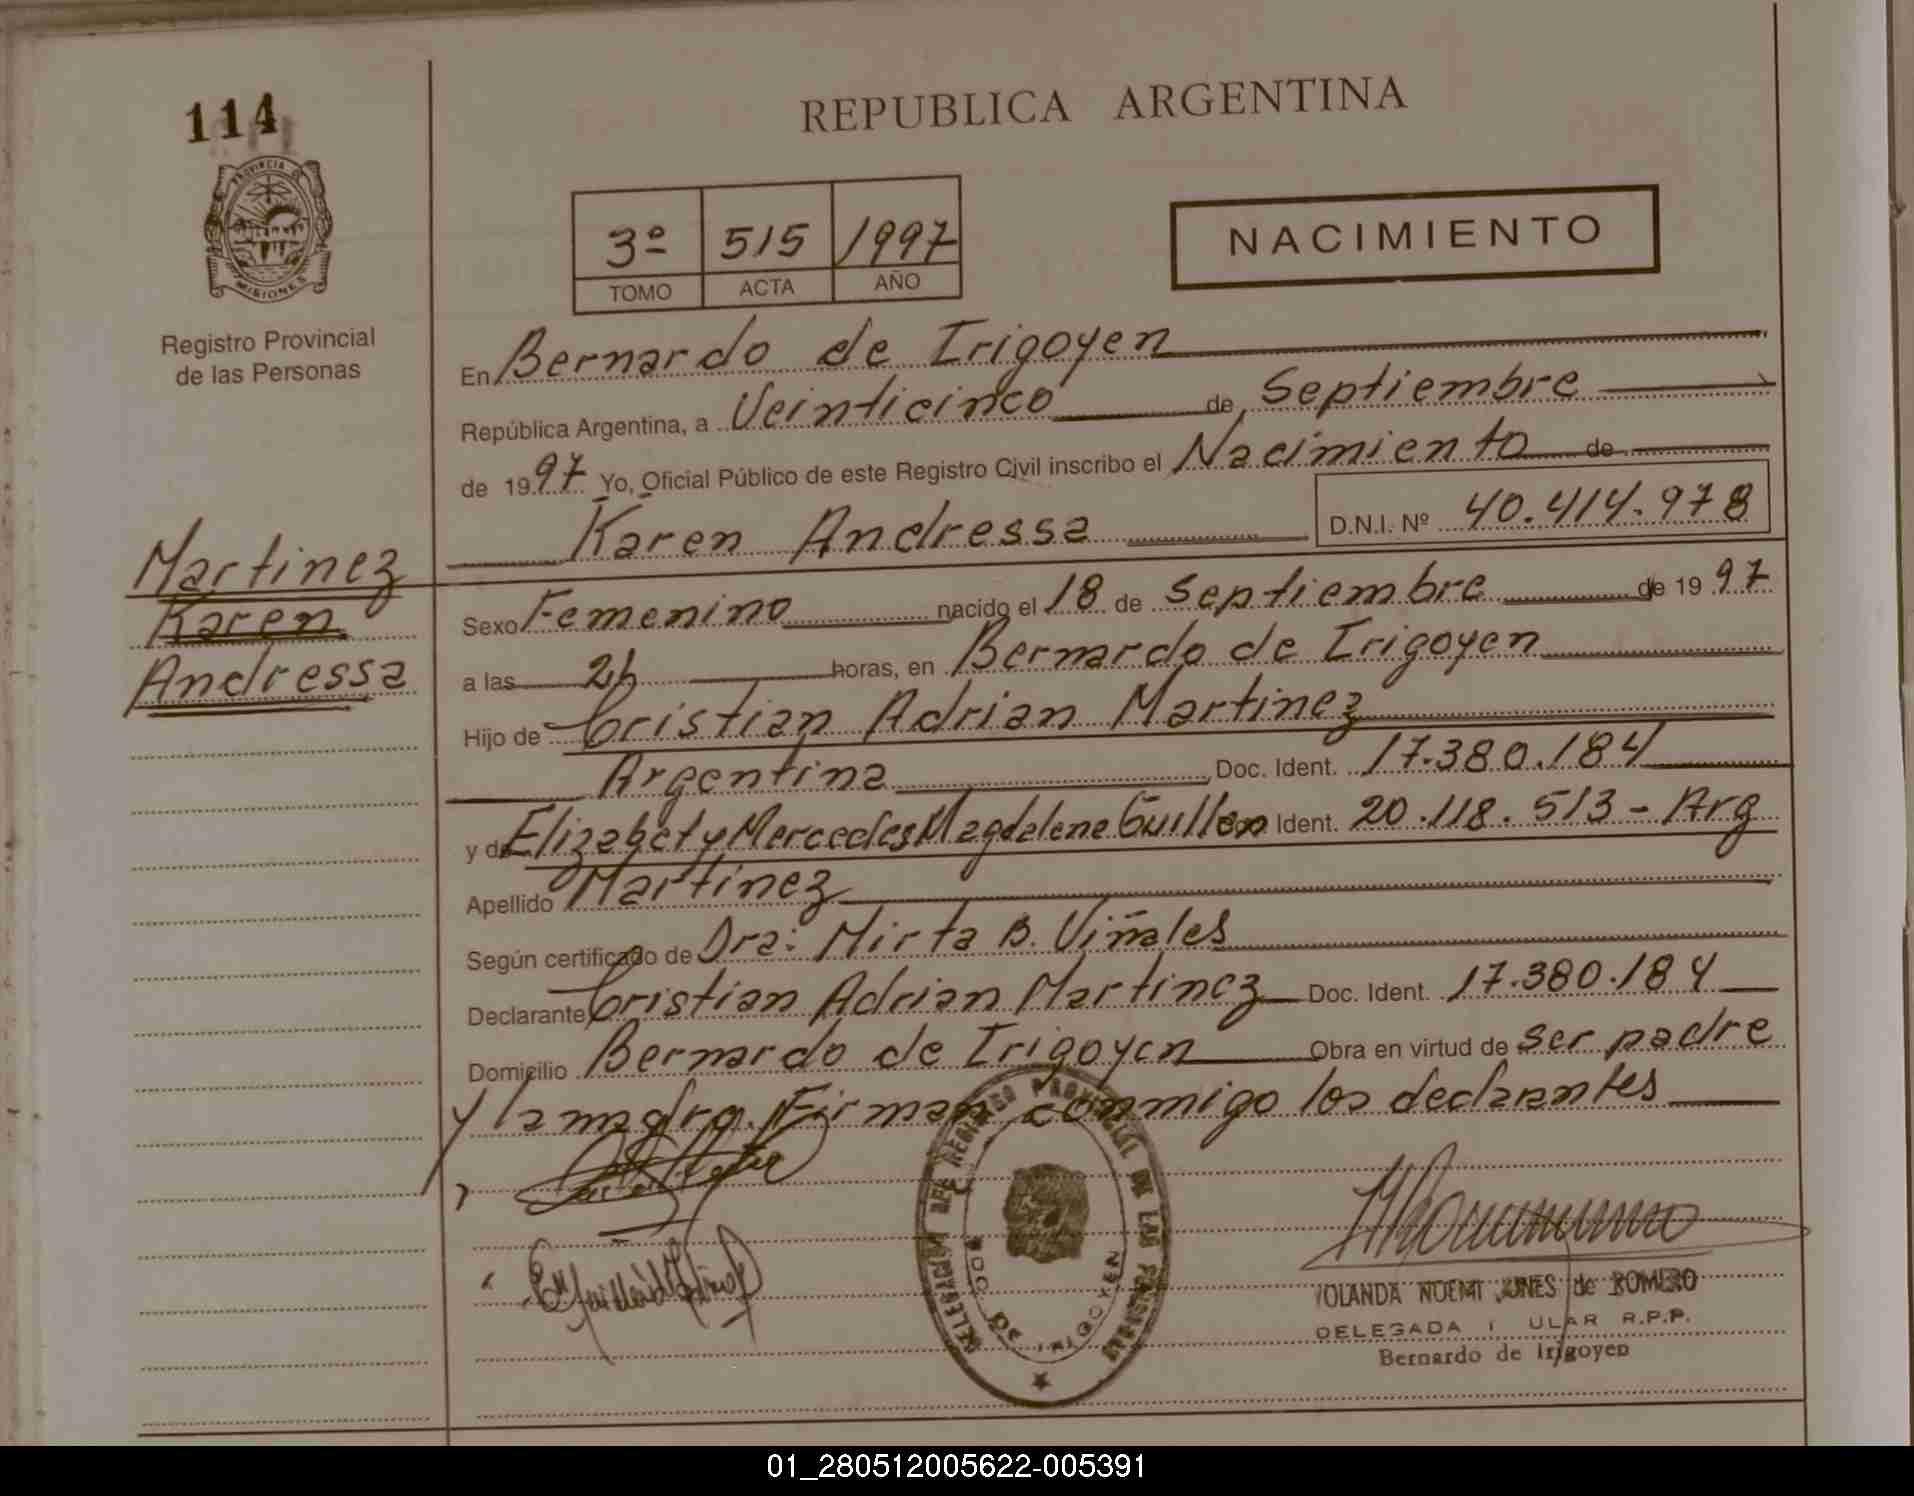 114
REPUBLICA ARGENTINA
PROVINCIA DE
MISIONES
3º 515 1997
TOMO ACTA AÑO
NACIMIENTO
Registro Provincial
de las Personas
En Bernardo de Irigoyen
República Argentina, a Veinticinco de Septiembre
de 1997 Yo, Oficial Público de este Registro Civil inscribo el Nacimiento de
Karen Andressa D.N.I. Nº 40.414.978
Martinez
Karen
Andressa
Sexo Femenino nacido el 18 de Septiembre de 1997
a las 2h horas, en Bernardo de Irigoyen
Hijo de Cristian Adrian Martinez
Argentina Doc. Ident. 17.380.184
y de Elizabet y Mercedes Magdalena Guillen Ident. 20.118.513 - Arg
Apellido Martinez
Según certificado de Dra: Mirta B. Viñales
Declarante Cristian Adrian Martinez Doc. Ident. 17.380.184
Domicilio Bernardo de Irigoyen Obra en virtud de ser padre
y la madre. Firman conmigo los declarantes
DELEGACION DEL REGISTRO PROVINCIAL DE LAS PERSONAS
BDO. DE IRIGOYEN
YOLANDA NOEMI de ROMERO
DELEGADA R.P.P.
Bernardo de Irigoyen
01_280512005622-005391